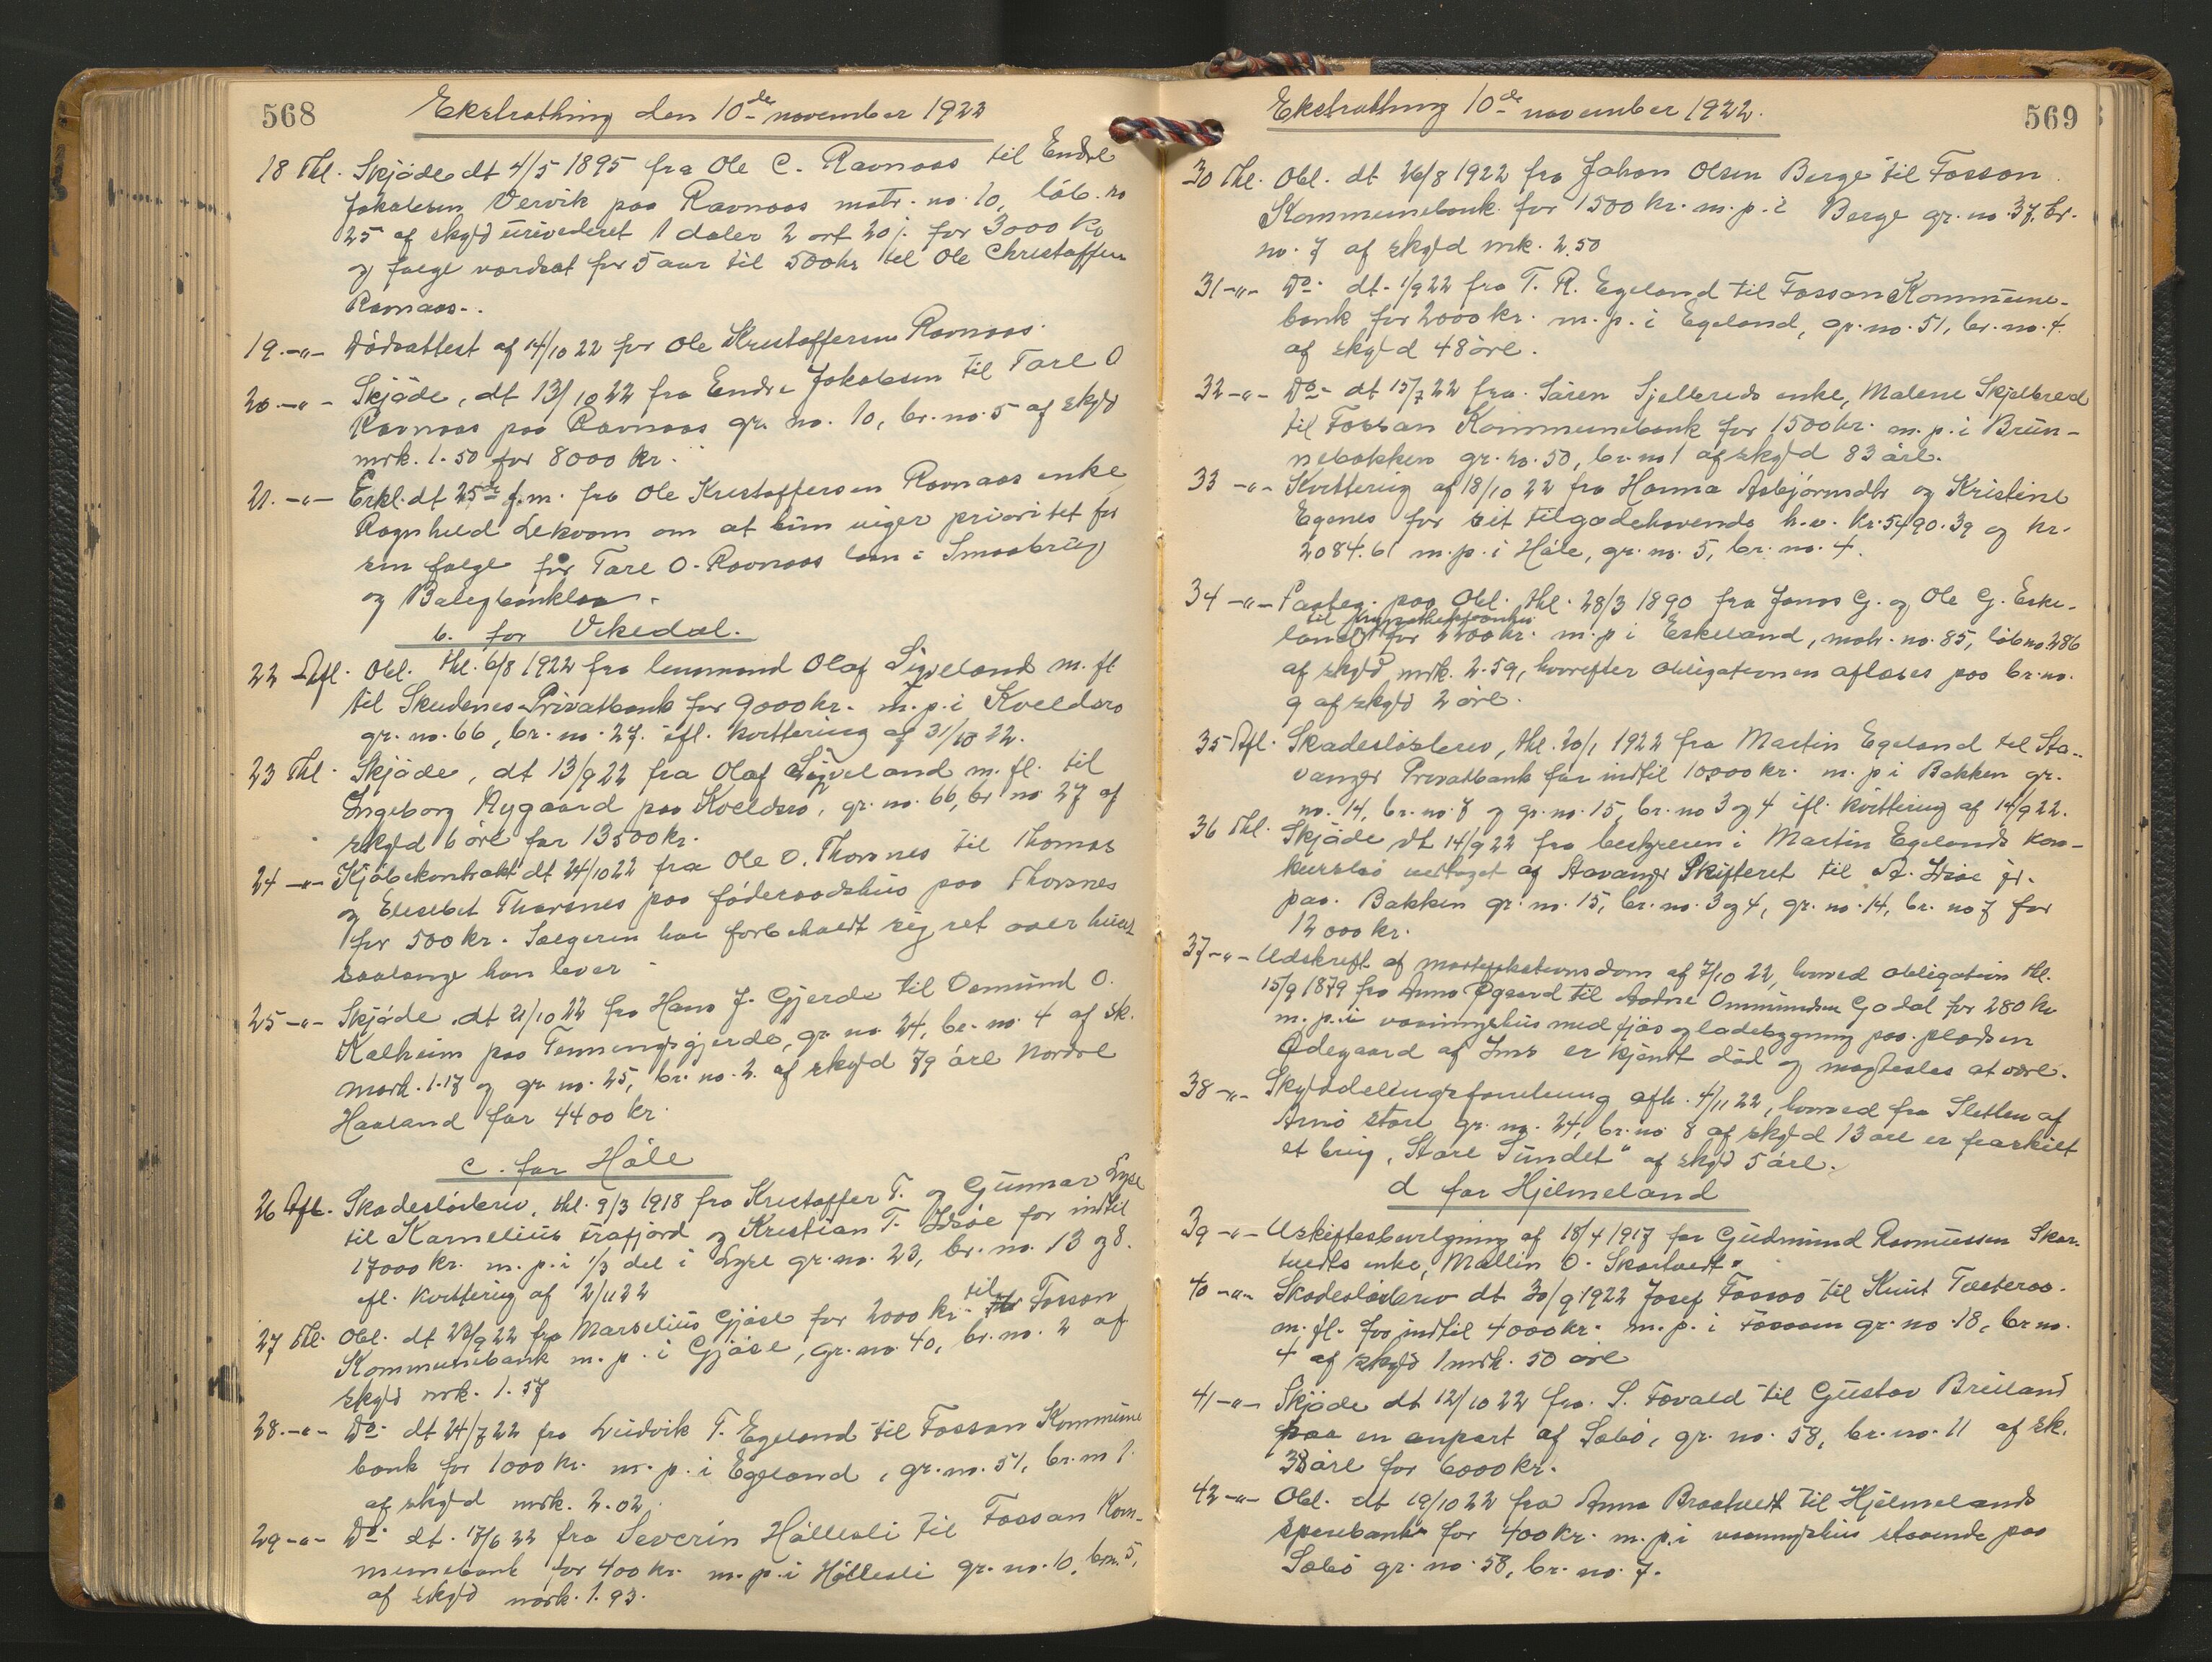 568
Ekstrathing den 10de november 1922
18 Thl. Skjøde dt 4/5 1895 fra Ole C. Ravnaas til Endre
Jakobsen Vervik paa Ravnaas matr. no. 10, løb. no
25 af skyld urevideret 1 daler 2 ort 20 s. for 3000 kr
og folge værdsat for 5 aar til 500 kr til Ole Christoffer
Ravnaas.
19.-"- Dødsattest af 14/10 22 for Ole Kristoffersen Ravnaas.
20.-"- Skjøde, dt 13/10 22 fra Endre Jakobsen til Tore O
Ravnaas paa Ravnaas gr. no. 10, br. no. 5 af skyld
mrk. 1.50 for 8000 kr.
21.-"- Erkl. dt 25de f.m. fra Ole Kristoffersen Ravnaas enke
Ragnhild om at hun viger prioritet for
sin folge for Tore O. Ravnaas laan i Smaabrug
og Boligbanken.
b. for Vikedal.
22 Afl. Obl. thl. 6/8 1922 fra lensmand Olaf Sigveland m. fl
til Skudenes Privatbank for 9000 kr. m. p. i Kveldsro
gr. no. 66, br. no. 27. ifl. kvittering af 31/10 22.
23 Thl. Skjøde, dt 13/9 22 fra Olaf Sigveland m. fl. til
Ingeborg Nygaard paa Kveldsro, gr. no. 66, br no 27 af
skyld 6 øre for 13500 kr.
24 -"- Kjøbekontrakt dt 24/10 22 fra Ole O. Thorsnes til Thomas
og Elisebet Thorsnes paa føderaadshus paa Thorsnes
for 500 kr. Sælgeren har forbeholdt sig ret over huset
saalænge han lever.
25 -"- Skjøde, dt 21/10 22 fra Hans J. Gjerde til Osmund O.
Kalheim paa gr. no. 24, br. no. 4 af sk.
mark. 1.17 og gr. no. 25, br. no. 2. af skyld 79 øre Nordre
Haaland for 4400 kr.
c. for Høle
26 Afl. Skadesløsbrev, thl. 9/3 1918 fra Kristoffer T. og Gunnar Lyse
til Kornelius Frafjord og Kristian T. Idsøe for indtil
17000 kr. m. p. i 1/3 del i Lyse gr. no. 23, br. no. 13 og 8.
ifl. kvittering af 2/11 22
27 Thl. Obl. dt 23/9 22 fra Marselius Gjøse for 2000 kr. til Fossan
Kommunebank m. p. i Gjøse, gr. no. 40, br. no. 2 af
skyld mrk. 1.57
28.-"- Do. dt 24/7 22 fra Ludvik T. Egeland til Fossan Kommune
bank for 1000 kr. m. p. i Egeland, gr. no. 51, br. no 1.
af skyld mrk. 2.02.
29 -"- Do. dt. 17/6 22 fra Severin Høllesli til Fossan Kom-
munebank for 400 kr. m. p. i Høllesli gr. no. 6, brn. 5.
af skyld mark. 1.93.
569
Ekstrathing 10de november 1922.
30 Thl. Obl. dt 26/8 1922 fra Johan Olsen Berge til Fossan
Kommunebank for 1500 kr. m. p. i Berge gr. no. 37. br.
no. 7 af skyld mk. 2.50
31 -"- Do. dt. 1/9 22 fra T. R. Egeland til Fossan Kommune-
bank for 2000 kr. m. p. i Egeland, gr. no. 51, br. no. 4.
af skyld 48 øre.
32 -"- Do. dt 15/7 22 fra Søren Sjelbreds enke, Malene Skjelbred
til Fossan Kommunebank for 1500 kr. m. p. i Brün-
nebakken gr. no. 50, br. no 1 af skyld 83 øre.
33 -"- Kvittering af 18/10 22 fra Hanna Asbjørnsdtr og Kristine
Egenes for sit tilgodehavende h.v. kr. 5490.39 og kr.
2084.61 m. p. i Høle, gr. no. 5, br. no. 4.
34 -"- Paateg. paa Obl. thl. 28/3 1890 fra Jonas G. og Ole G. Eske-
til Hypothekbanken
land for 2200 kr. m. p i Eskeland, matr. no. 85, løbno. 286
af skyld mrk. 2.59, hvorefter obligationen aflæses paa br. no.
9 af skyld 2 øre.
35 Afl. Skadesløsbrev, thl. 20/1 1922 fra Martin Egeland til Sta-
vanger Privatbank for indtil 10000 kr. m. p i Bakken gr.
no. 14, br. no. 7 og gr. no. 15, br. no 3 og 4 ifl. kvittering af 14/9 22.
36 Thl. Skjøde dt 14/9 22 fra bestyreren i Martin Egelands kon-
kursbo vedtaget af Stavanger Skifteret til A. Idsøe jr.
paa. Bakken gr. no. 15, br. no. 3 og 4, gr. no. 14, br. no 7 for
12000 kr.
37 -"- Udskrift af mortifikationsdom af 7/10 22, hvorved obligation thl.
15/9 1879 fra Anna Øgaard til Aadne Ommundsen Godal for 280 kr
m. p. i vaaningshus med fjøs og ladebygning paa pladsen
Ødegaard af Ims er kjendt død og magtesløs at være.
38 -"- Skylddelingsforretning afh. 4/11 22, hvorved fra Sletten af
Arnø store gr. no. 24, br. no 8 af skyld 13 øre er fraskilt
et brug, "Store Sundet" af skyld 5 øre.
d for Hjelmeland
39 -"- Uskiftesbevilgning af 18/4 1917 for Gudmund Rasmussen Skar-
tvedts enke, Mallin O. Skartvedt.
40 -"- Skadesløsbrev dt 30/9 1922 Josef Fossaa til Knut Tveteraa.
m. fl. for indtil 4000 kr. m. p. i Fossaan gr. no 18, br no.
4 af skyld 1 mrk. 50 øre
41 -"- Skjøde dt 12/10 22 fra. S. Tovald til Gustav Breiland
paa en anpart af Sæbø, gr. no. 58, br. no. 11 af sk.
38 øre for 6000 kr.
42 -"- Obl. dt 19/10 22 fra Anna Braatvedt til Hjelmelands
sparebank for 400 kr. m. p. i vaaningshus staaende paa
Sæbø gr. no 58, br. no. 7.